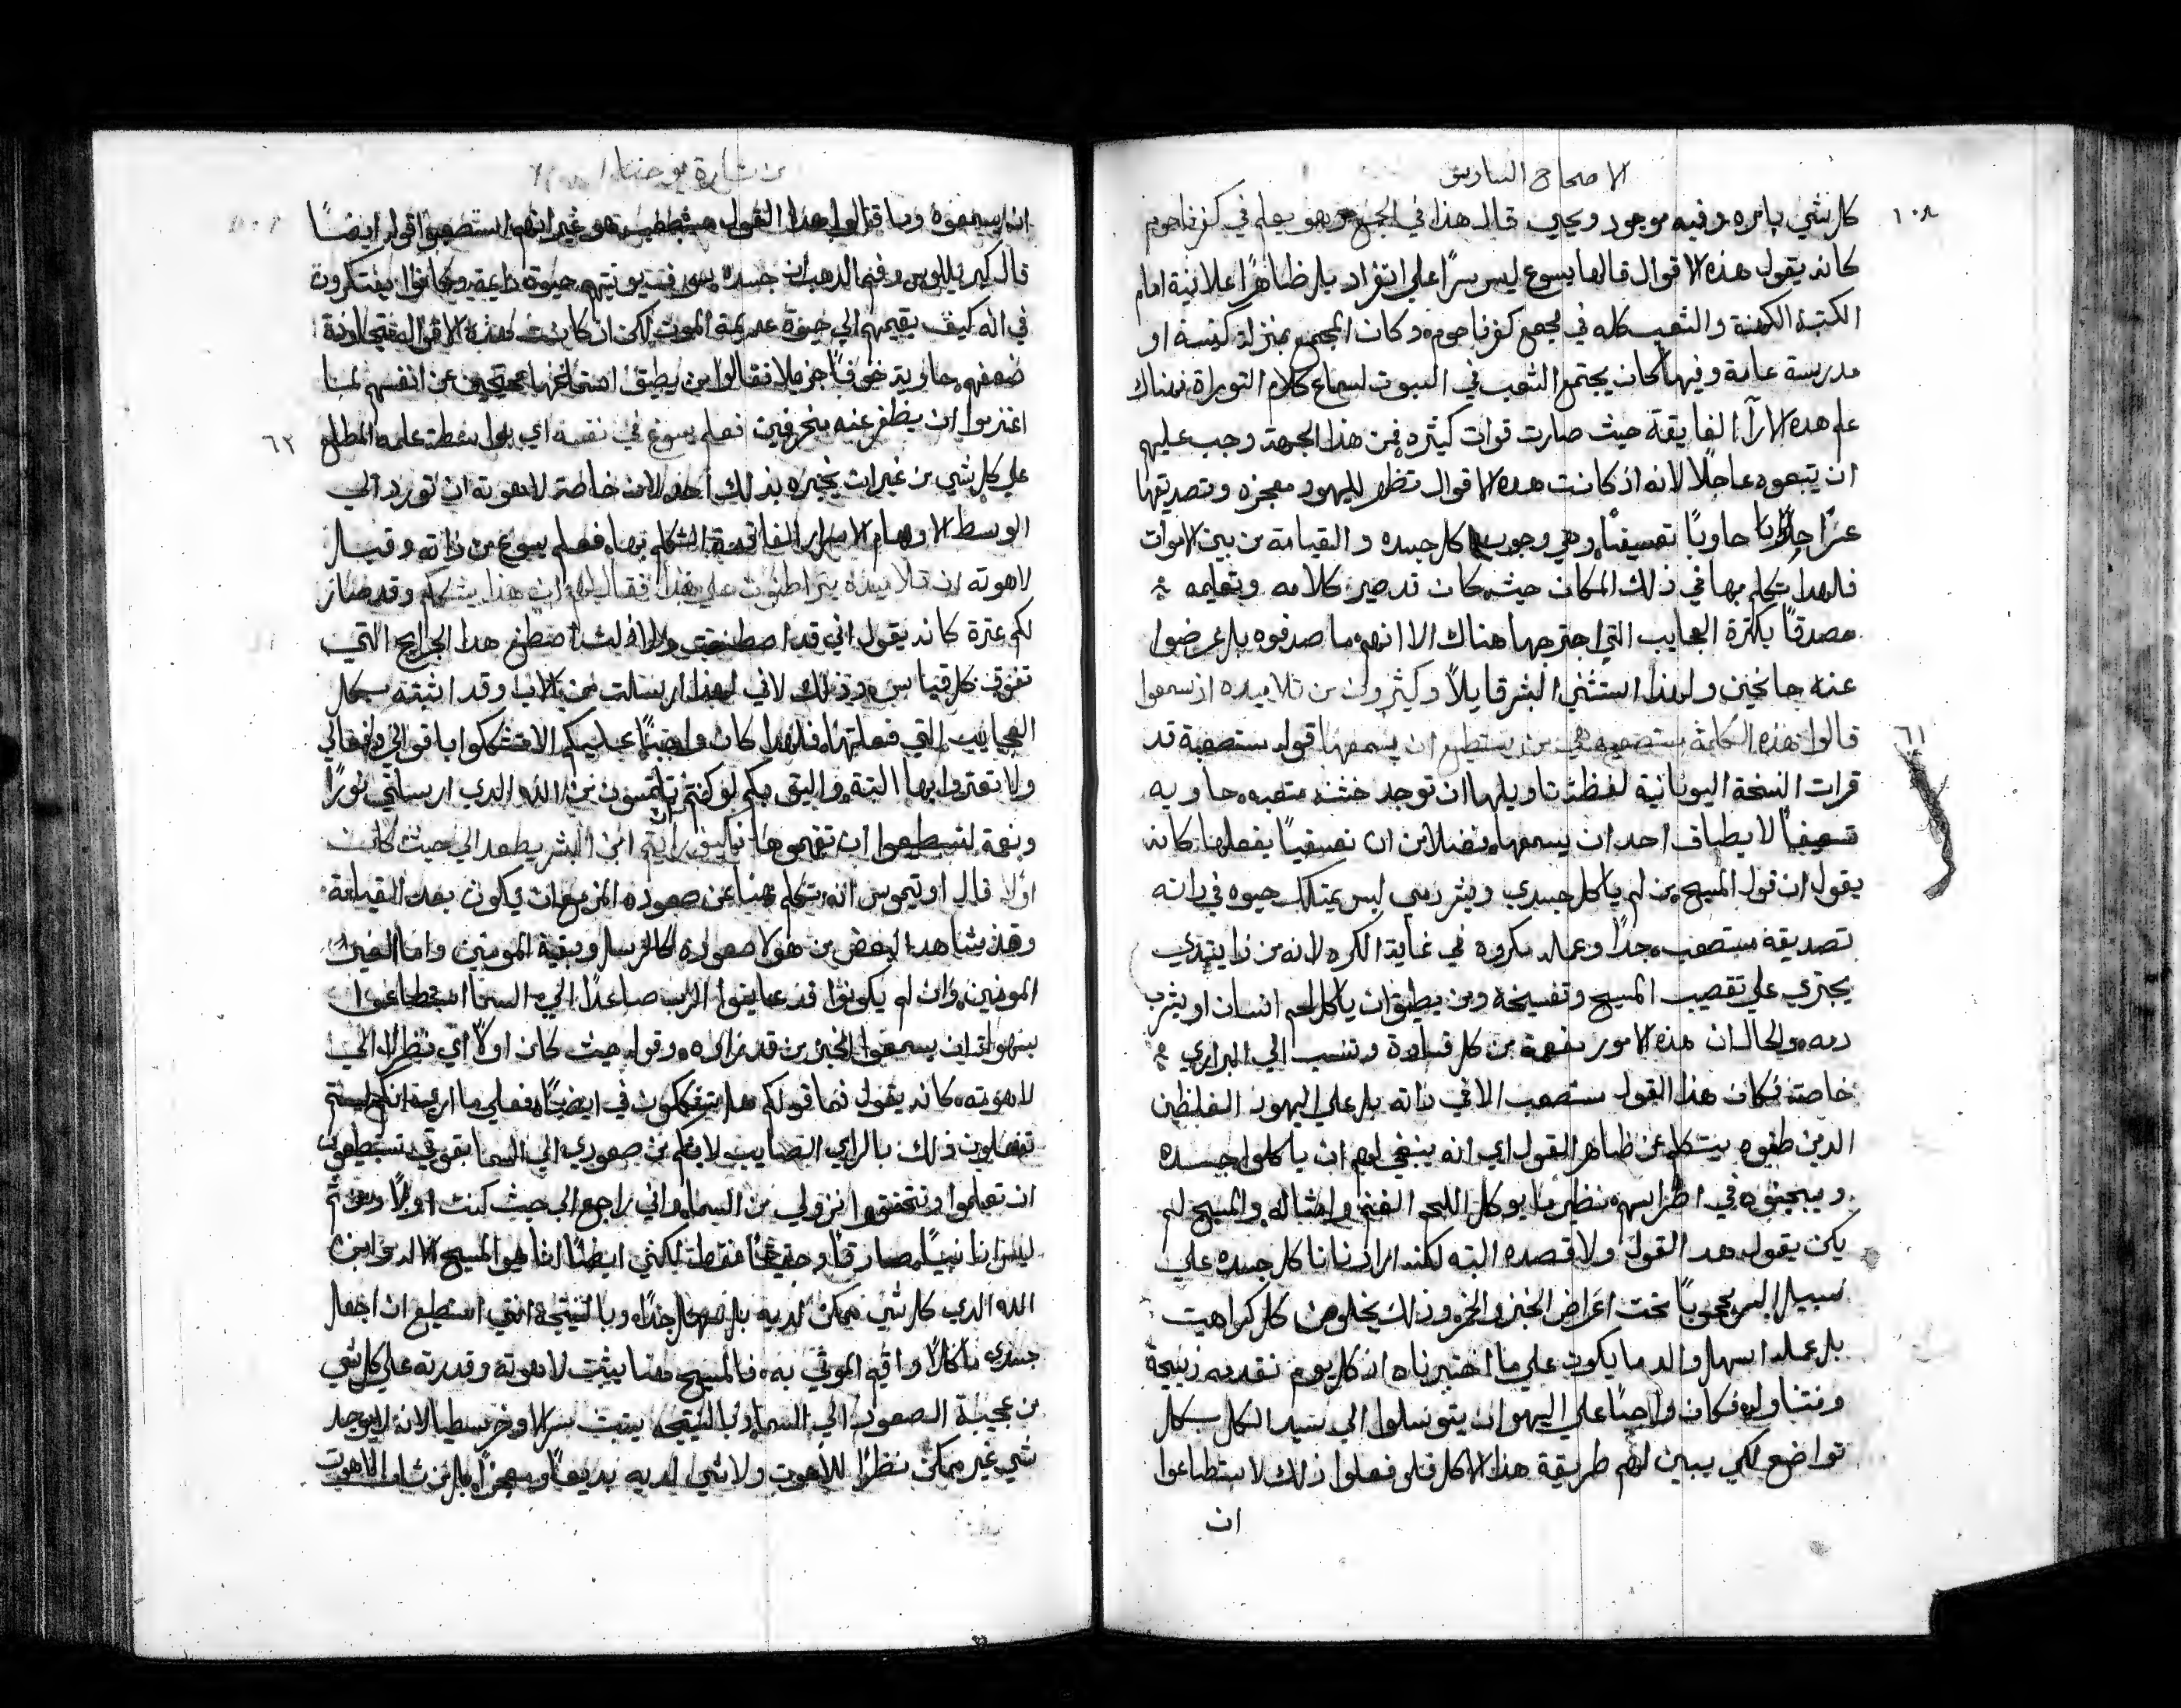 الاصحاح السادس
١٠٨
كل شي بامره وفيه موجود ويحيى قال هذا في المجمع وهو يعلم في كفرناحوم
كانه يقول هذه الاقوال قالها يسوع ليس سرًا على انفراد بل ظاهرًا علانية امام
الكتبة الكهنة والشعب كله في مجمع كفرناحوم وكان المجمع بمنزلة كنيسة او
مدرسة عامة وفيها كان يجتمع الشعب في السبوت لسماع كلام التوراة فهناك
علم هده الارآ الفايقة حيث صارت قوات كثيره فمن هذا الجهة وجب عليهم
ان يتبعوه عاجلًا لانه اذ كانت هده الاقوال تظهر لليهود معجزه وتصديقها
عسرًا جدًا حاويًا تعسيفًا وهي وجوب اكل جسده والقيامة من بين الاموات
فلهدا تكلم بها في ذلك المكان حيث كان قد صير كلامه وتعليمه
مصدقًا بكثرة العجايب التي اجترحها هناك الا انهم ما صدقوه بل عرضوا
عنه جانحين ولهذا استثنى البشر قايلًا وكثيرون من تلاميده اذ سمعوا
٦١
قالوا هذه الكلمة مستصعبه هي من يستطيع ان يسمعها قوله مستصعبة قد
قرات النسخة اليونانية لفظة تاويلها ان توجد خشنه متعبه حاويه
تعسيفًا لا يطاق احد ان يسمعها فضلًا من ان تعسفيًا يفعلها كانه
يقول ان قول المسيح من لم ياكل جسدي ويشرب دمي ليس يمتلك حيوه في داته
تصديقه مستصعب جدًا وعمله مكروه في غاية الكره لانه من ذا يتبدي
يجتري على تقصيب المسيح وتفسيخه ومن يطيق ان ياكل لحم انسان او يشرب
دمه والحال ان هذه الامور مفعمة من كل قساوة وتنسب الى البراري
خاصة فكان هذا القول مستصعب لا في داته بل على اليهود الغلظين
الدين ظنوه يتكلم عن ظاهر القول اي انه ينبغي لهم ان ياكلوا جسده
ويسحقوه في اضراسهم نظير ما يوكل اللحم الغنم وامثاله والمسيح لم
يكن يقول هدا القول ولا قصده البته لكنه اراد ناكل جسده على
سبيل السر محجوبًا تحت اعراض الخبز والخمر وذلك يخلو من كل كراهيت
بل عمله اسهل والد ما يكون على ما اختبرناه اذ كل يوم نقدمه ذبيحة
ونتناوله فكان واجبًا على اليهود ان يتوسلوا الى سيد الكل بكل
تواضع لكي يبين لهم طريقة هذا الاكل فلو فعلوا ذلك لاستطاعوا
ان
من بشارة يوحنا
ان يسمعوه وما قالوا هدا القول مستصعب هو غير انهم استصعبوا قوله ايضًا
قال كيرلليوس وفم الدهب ان جسده سوف يوتيهم حيوة دايمة وكانوا يفتكرون
في انه كيف يقيمهم الى حيوة عديمة الموت لكن اذ كانت هذه الاقوال متجاوزة
ضعفهم حاويه خوفًا جزيلًا فقالوا من يطيق استماعها محتجين عن انفسهم لما
٦٢
اعتزموا ان يظفر عنه منحرفين فعلم يسوع في نفسه اي بواسطة علمه المطلع
على كل شي من غير ان يخبره بذلك احد لان خاصة لاهوته ان تورد الى
الوسط الاوهام الاسرار الفايقة التكلم بها فعلم يسوع من ذاته وقبل
لاهوته ان تلاميده يتراطنون على هذا فقال لهم ان هذا يشككم وقد صار
لكم عثرة كانه يقول اني قد اصطنعت ولا ازلت اصطنع هدا الجرايح التي
تفوق كل قياس وذلك لاني لهذا ارسلت من الاب وقد اثبته بكل
العجايب التي فعلتها فلهدا كان واجبًا عليكم الا تشككوا باقوالي وافعالي
ولا تعثروا بها البتة واليق بكم لو كنتم تلتمسون من الله الدي ارسلني نورًا
ونعمة لتستطيعوا ان تفهموها فكيف ان رايتم ابن البشر يصعد الى حيث كان
اولًا قال اوتيموس انه تكلم هنا عن صعوده المزمع ان يكون بعد القيامة
وقد شاهد البعض من هولا صعوده كالرسل وبقية المومنين واما الغير
المومنين وان لم يكونوا قد عاينوا الرب صاعدًا الى السما استطاعوا
بسهولة ان يسمعوا الخبر من قد راوه وقوله حيث كان اولًا اي نظرًا الى
لاهوته كانه يقول فما قولكم هل تشككون في ايضًا فعلى ما اري انكم لستم
تفعلون ذلك بالراي الصايب لانكم من صعودي الى السما بقوتي تستطيعون
ان تعلموا وتتحققوا نزولي من السما واني راجع الى حيث كنت اولًا ومن ثم
ليس انا نبيًا صادقًا وحقيقيًا فقط لكنني ايضًا انا هو المسيح الاله وابن
الله الدي كل شي ممكن لديه بل سهل جدًا وبالنتيجة انني استطيع ان اجعل
جسدي ماكلًا واقيم الموتى به فالمسيح هنا يثبت لاهوته وقدرته على كل شي
من عجيبة الصعود الى السما وبالنتيجه يثبت سر الاوخرسطيا لانه لا يوجد
شي غير ممكن نظرًا للاهوت ولا شي لديه بديعًا ومعجزًا بل من شان اللاهوت